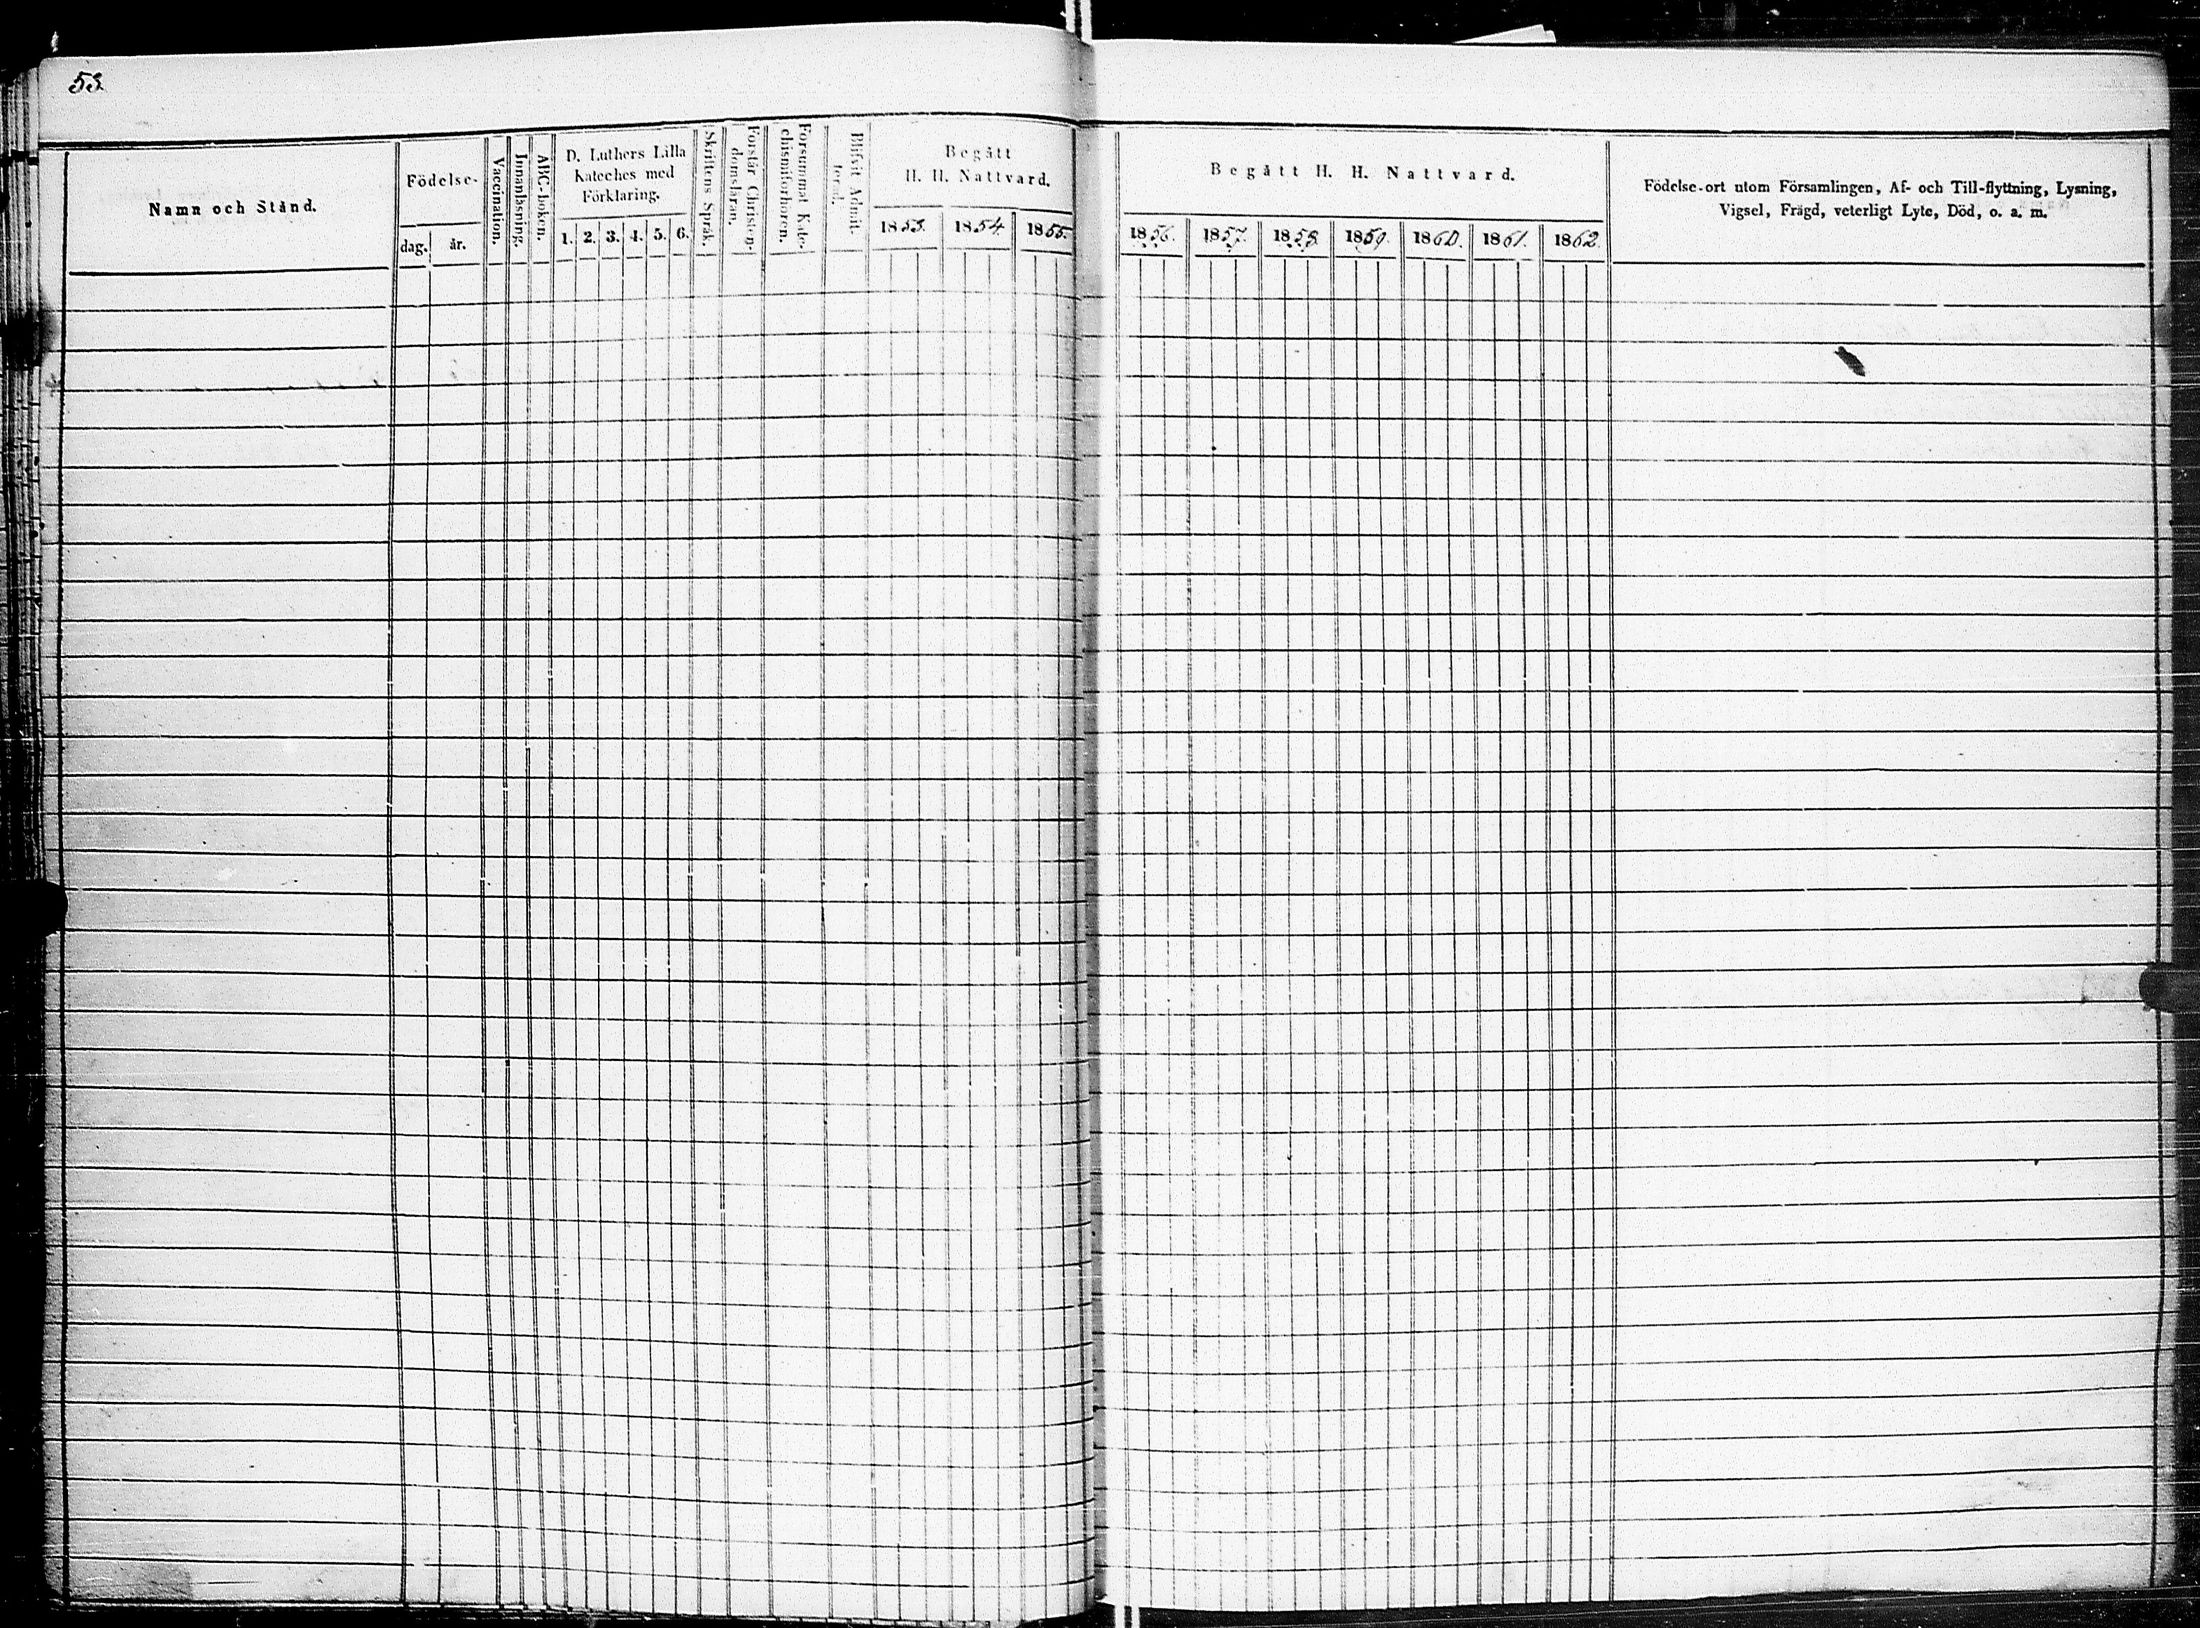 53.
Namn och Stånd.
Födelse-
dag.
år.
Vaccination.
Innanläsning.
ABC-boken.
D. Luthers Lilla
Kateches med
Förklaring.
1. 2. 3. 4. 5. 6.
Skriftens Språk.
Förstår Christen-
domsläran.
Försummat Kate-
chismiförhören.
Blifvit Admit-
terad.
Begått
H. H. Nattvard.
1853. 1854. 1855.
Begått H. H. Nattvard.
1856. 1857. 1858. 1859. 1860. 1861. 1862.
Födelse-ort utom Församlingen, Af- och Till-flyttning, Lysning,
Vigsel, Frägd, veterligt Lyte, Död, o. a. m.